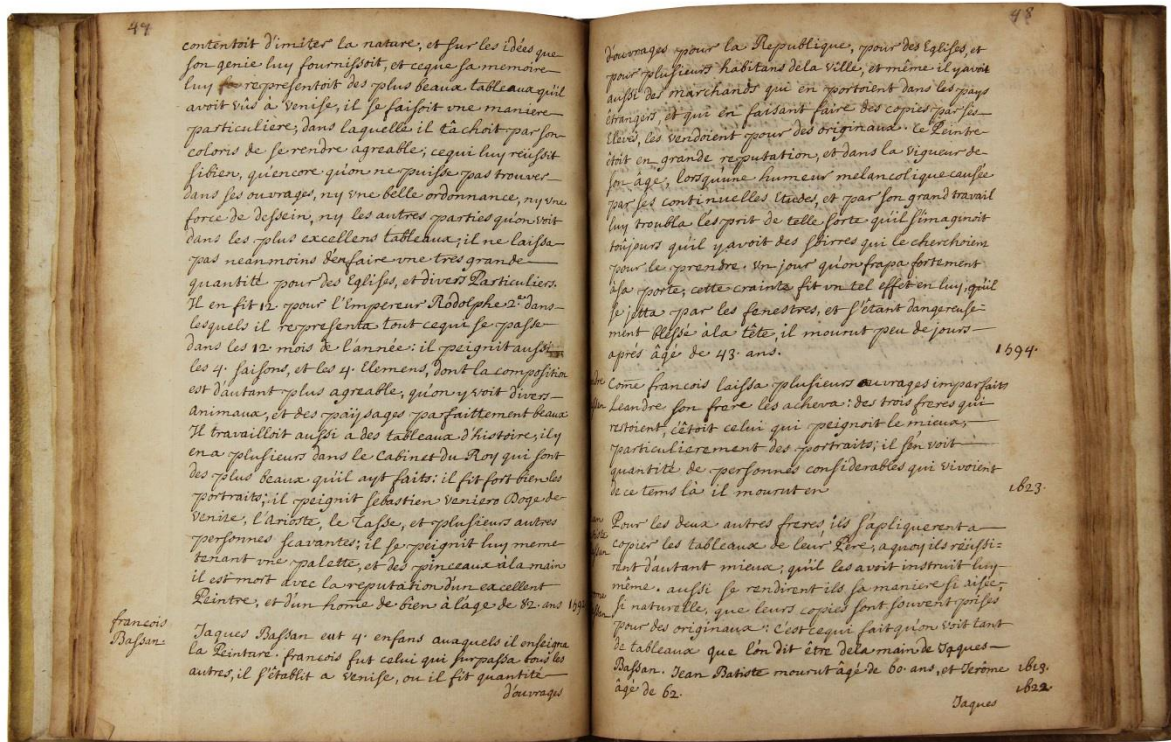 47
contentoit d'imiter la nature, et sur les idées que
son genie luy fournissoit, et ceque sa memoire
luy representoit des plus beaux tableaux qu'il
avoit vûs a venise, il se faisoit vne maniere
particuliere, dans laquelle il tâchoit par son
coloris de se rendre agreable; cequi luy réussit
sibien, qu'encore qu'on ne puisse pas trouver
dans ses ouvrages, ny vne belle ordonnance, ny vne
force de dessein, ny les autres parties qu'on voit
dans les plus excellens tableaux; il ne laissa
pas neanmoins d'en faire vne tres grande
quantité pour des Eglises, et divers Particuliers.
Il en fit 12 pour l'Empereur Rodolphe 2.e dans
lesquels il representa tout cequi se passe
dans les 12 mois de l'année: il peignit aussi
les 4. saisons, et les 4. Elemens, dont la composition
est d'autant plus agreable, qu'on y voit divers
animaux, et des païsages parfaittement beaux
Il travailloit aussi a des tableaux d'histoire; il y
en a plusieurs dans le Cabinet du Roy qui sont
des plus beaux qu'il ayt faits: il fit fort bien les
portraits; il peignit sebastien veniero Doge de
venise, l'Arioste, le Tasse, et plusieurs autres
personnes scavantes; il se peignit luy meme
tenant vne palette, et des pinceaux à la main
il est mort avec la reputation d'un excellent
Peintre, et d'un home de bien à l'age de 82 ans 1592
francois
Bassan
Jaques Bassan eut 4. enfans auxquels il enseigna
la Peinture. francois fut celui qui surpassa tous les
autres, il s'établit a venise, ou il fit quantité
d'ouvrages
48
d'ouvrages pour la Republique, pour des Eglises, et
pour plusieurs habitans dela ville, et même il y avoit
aussi des marchands qui en portoient dans les pays
étrangers, et qui en faisant faire des copies par ses
Elevés, les vendoient pour des originaux. Ce Peintre
étoit en grande reputation, et dans la vigueur de
son âge, lorsqu'une humeur melancolique causée
par ses continuelles Etudes, et par son grand travail
luy troubla l'esprit de telle sorte qu'il s'imaginoit
toûjours qu'il y avoit des sbirres qui le cherchoient
pour le prendre. vn jour qu'on frapa fortement
à sa porte, cette crainte fit vn tel effet en luy, qu'il
se jetta par les fenestres, et s'étant dangereuse-
ment blessé à la tête, il mourut peu de jours
aprés âgé de 43. ans. 1594.
Come francois laissa plusieurs ouvrages imparfaits
Leandre son frere les acheva: des trois freres qui
restoient, c'étoit celui qui peignoit le mieux,
particulierement des portraits; il s'en voit
quantité de personnes considerables qui vivoient
de ce tems là il mourut en 1623.
Pour les deux autres freres, ils s'apliquerent a
copier les tableaux de leur Pere, a quoy ils réussi=
rent d'autant mieux, qu'il les avoit instruit luy
même. aussi se rendirent ils sa maniere si aisée,
si naturelle, que leurs copies sont souvent prises
pour des originaux: C'est cequi fait qu'on voit tant
de tableaux que l'on dit être dela main de Jaques
Bassan. Jean Batiste mourut âgé de 60 ans, et Jerôme 1613.
âgé de 62. 1622.
Jaques